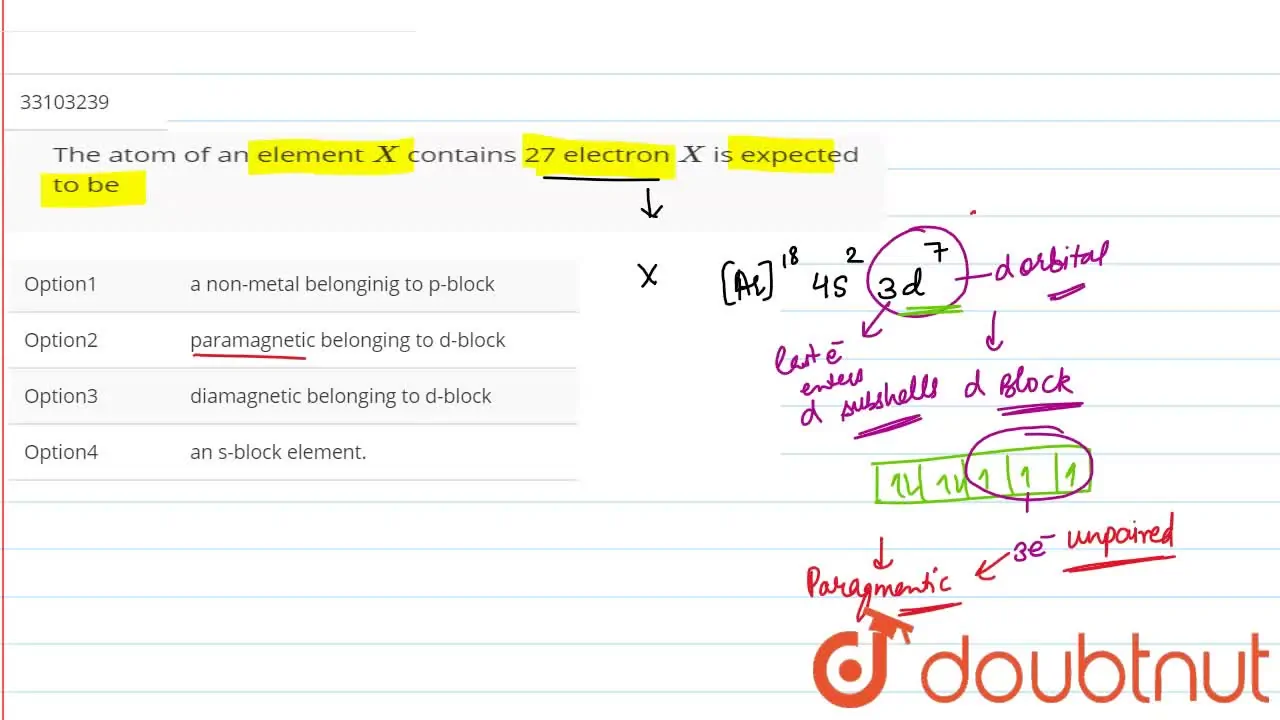 33103239
The atom of an element X contains 27 electron X is expected
to be
Option1 a non-metal belonginig to p-block
Option2 paramagnetic belonging to d-block
Option3 diamagnetic belonging to d-block
Option4 an s-block element.
X [Ar]18 4s2 3d7 d orbital
last e-
enters
d subshells d Block
1 1 1
3e- unpaired
Paragmentic
doubtnut